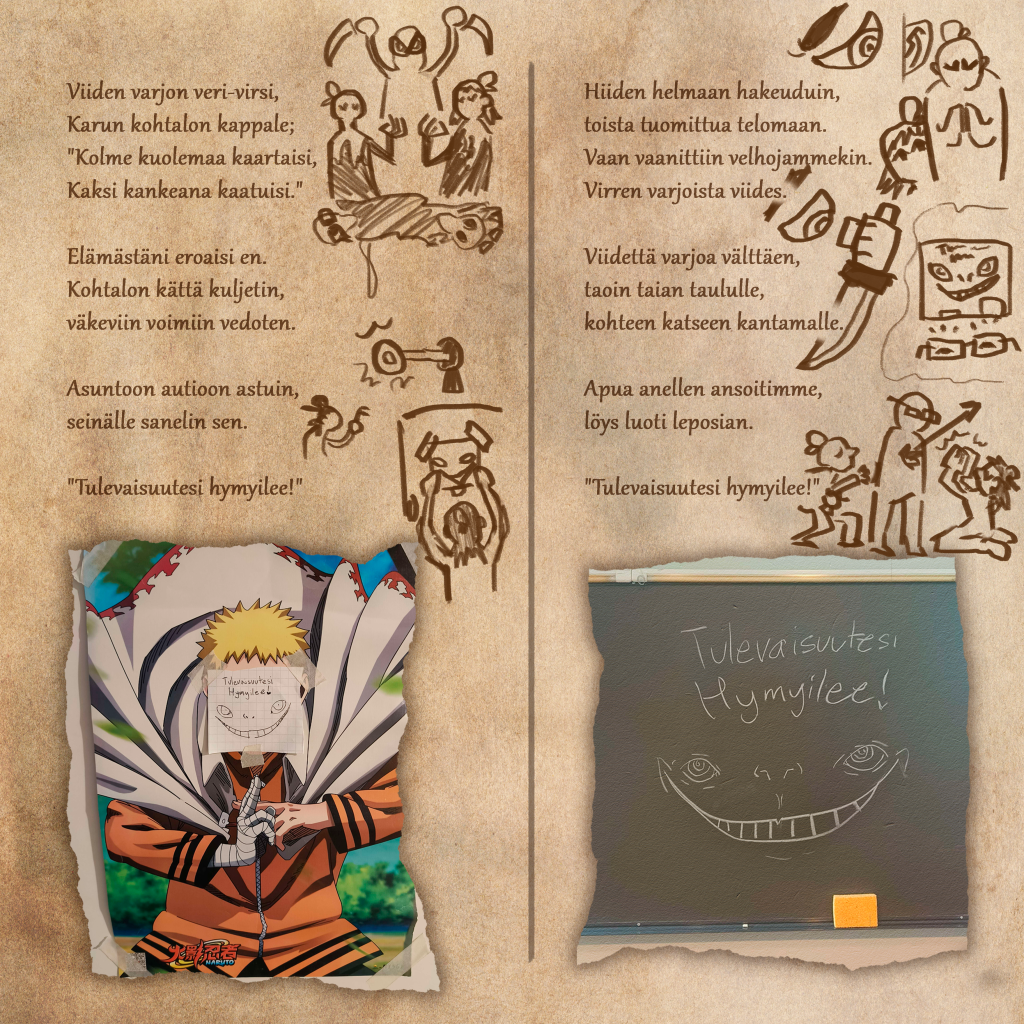 Viiden varjon veri-virsi,
Karun kohtalon kappale;
"Kolme kuolemaa kaartaisi,
Kaksi kankeana kaatuisi."
Elämästäni eroaisi en.
Kohtalon kättä kuljetin,
väkeviin voimiin vedoten.
Asuntoon autioon astuin,
seinälle sanelin sen.
"Tulevaisuutesi hymyilee!"
Tulevaisuutesi
Hymyilee!
火影忍者
NARUTO
Hiiden helmaan hakeuduin,
toista tuomittua telomaan.
Vaan vaanittiin velhojammekin.
Virren varjoista viides.
Viidettä varjoa välttäen,
taoin taian taululle,
kohteen katseen kantamalle.
Apua anellen ansoitimme,
löys luoti leposian.
"Tulevaisuutesi hymyilee!"
Tulevaisuutesi
Hymyilee!